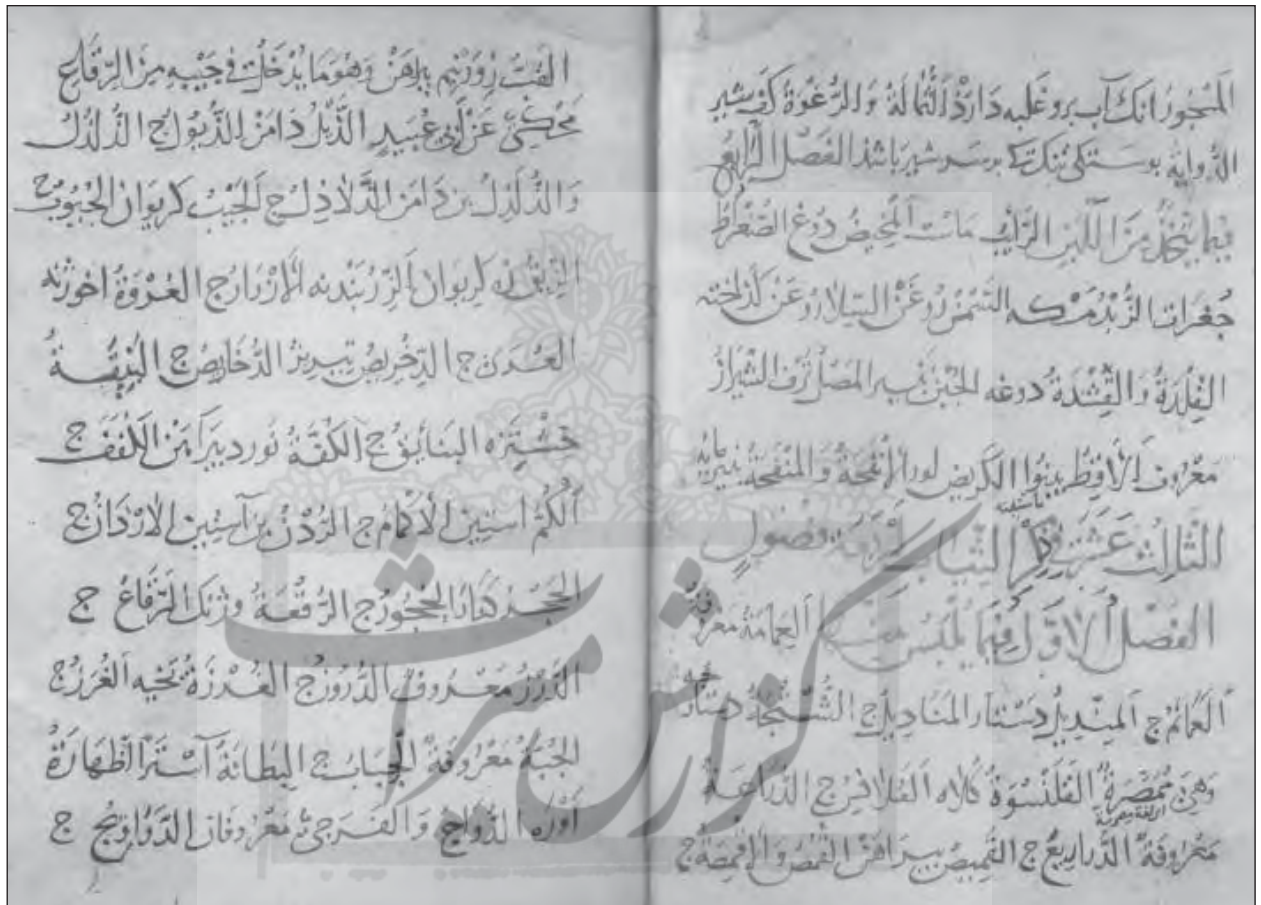 المسجور انک آب برو غلبه دارد الثمالة والرغوة کف شیر
الدواية بوستکی تنک که بر سر شیر باشد الفصل الرابع
فيما يتخذ من اللبن الرائب ماست المخيض دوغ الصقراط
جغرات الزبد مسکه السمن روغن السلاء روغن گداخته
القلدة والقشدة دوغه الجبن بنير المصل ترف الشيراز
معروف الاقط بينوا الكريض لور الانفحة والمنفحة بنیر مایه
الثالث عشر في ذكر الثياب اربعة فصول
الفصل الاول فيما يلبس العمامة معروفة
العمائم ج المنديل دستار المناديل ج الشستجة دستار
وهي ممصرة القلنسوة كلاه القلانس ج الدراعة
معروفة الدراريع ج القميص بيراهن القمص والاقمصة ج
القب زورنیم بیراهن وهو ما يدخل في جيبه من الرقاع
محكي عن ابي عبيد الذيل دامن الذيول ج الذلذل
والذلذل بن دامن الذلاذل ج الجيب کریوان الجيوب ج
الزيق زه کریوان الزر بندنه الازرار ج العروة اخورنه
العرى ج الدخريص تبريز الدخاريص ج البنيقة
خشتزه البنائق ج الكفة نورد بیرامن الكفف ج
الكم استين الاكمام ج الردن بن آستين الاردان ج
الحجر کنار الحجور ج الرقعة وژنک الرقاع ج
الدرز معروف الدروز ج الغرزة بخيه الغرز ج
الجبة معروفة الجباب ج البطانة آستر الظهارة
اوره الدواج والفرجي معروفان الدواويج ج
گزارش میراث